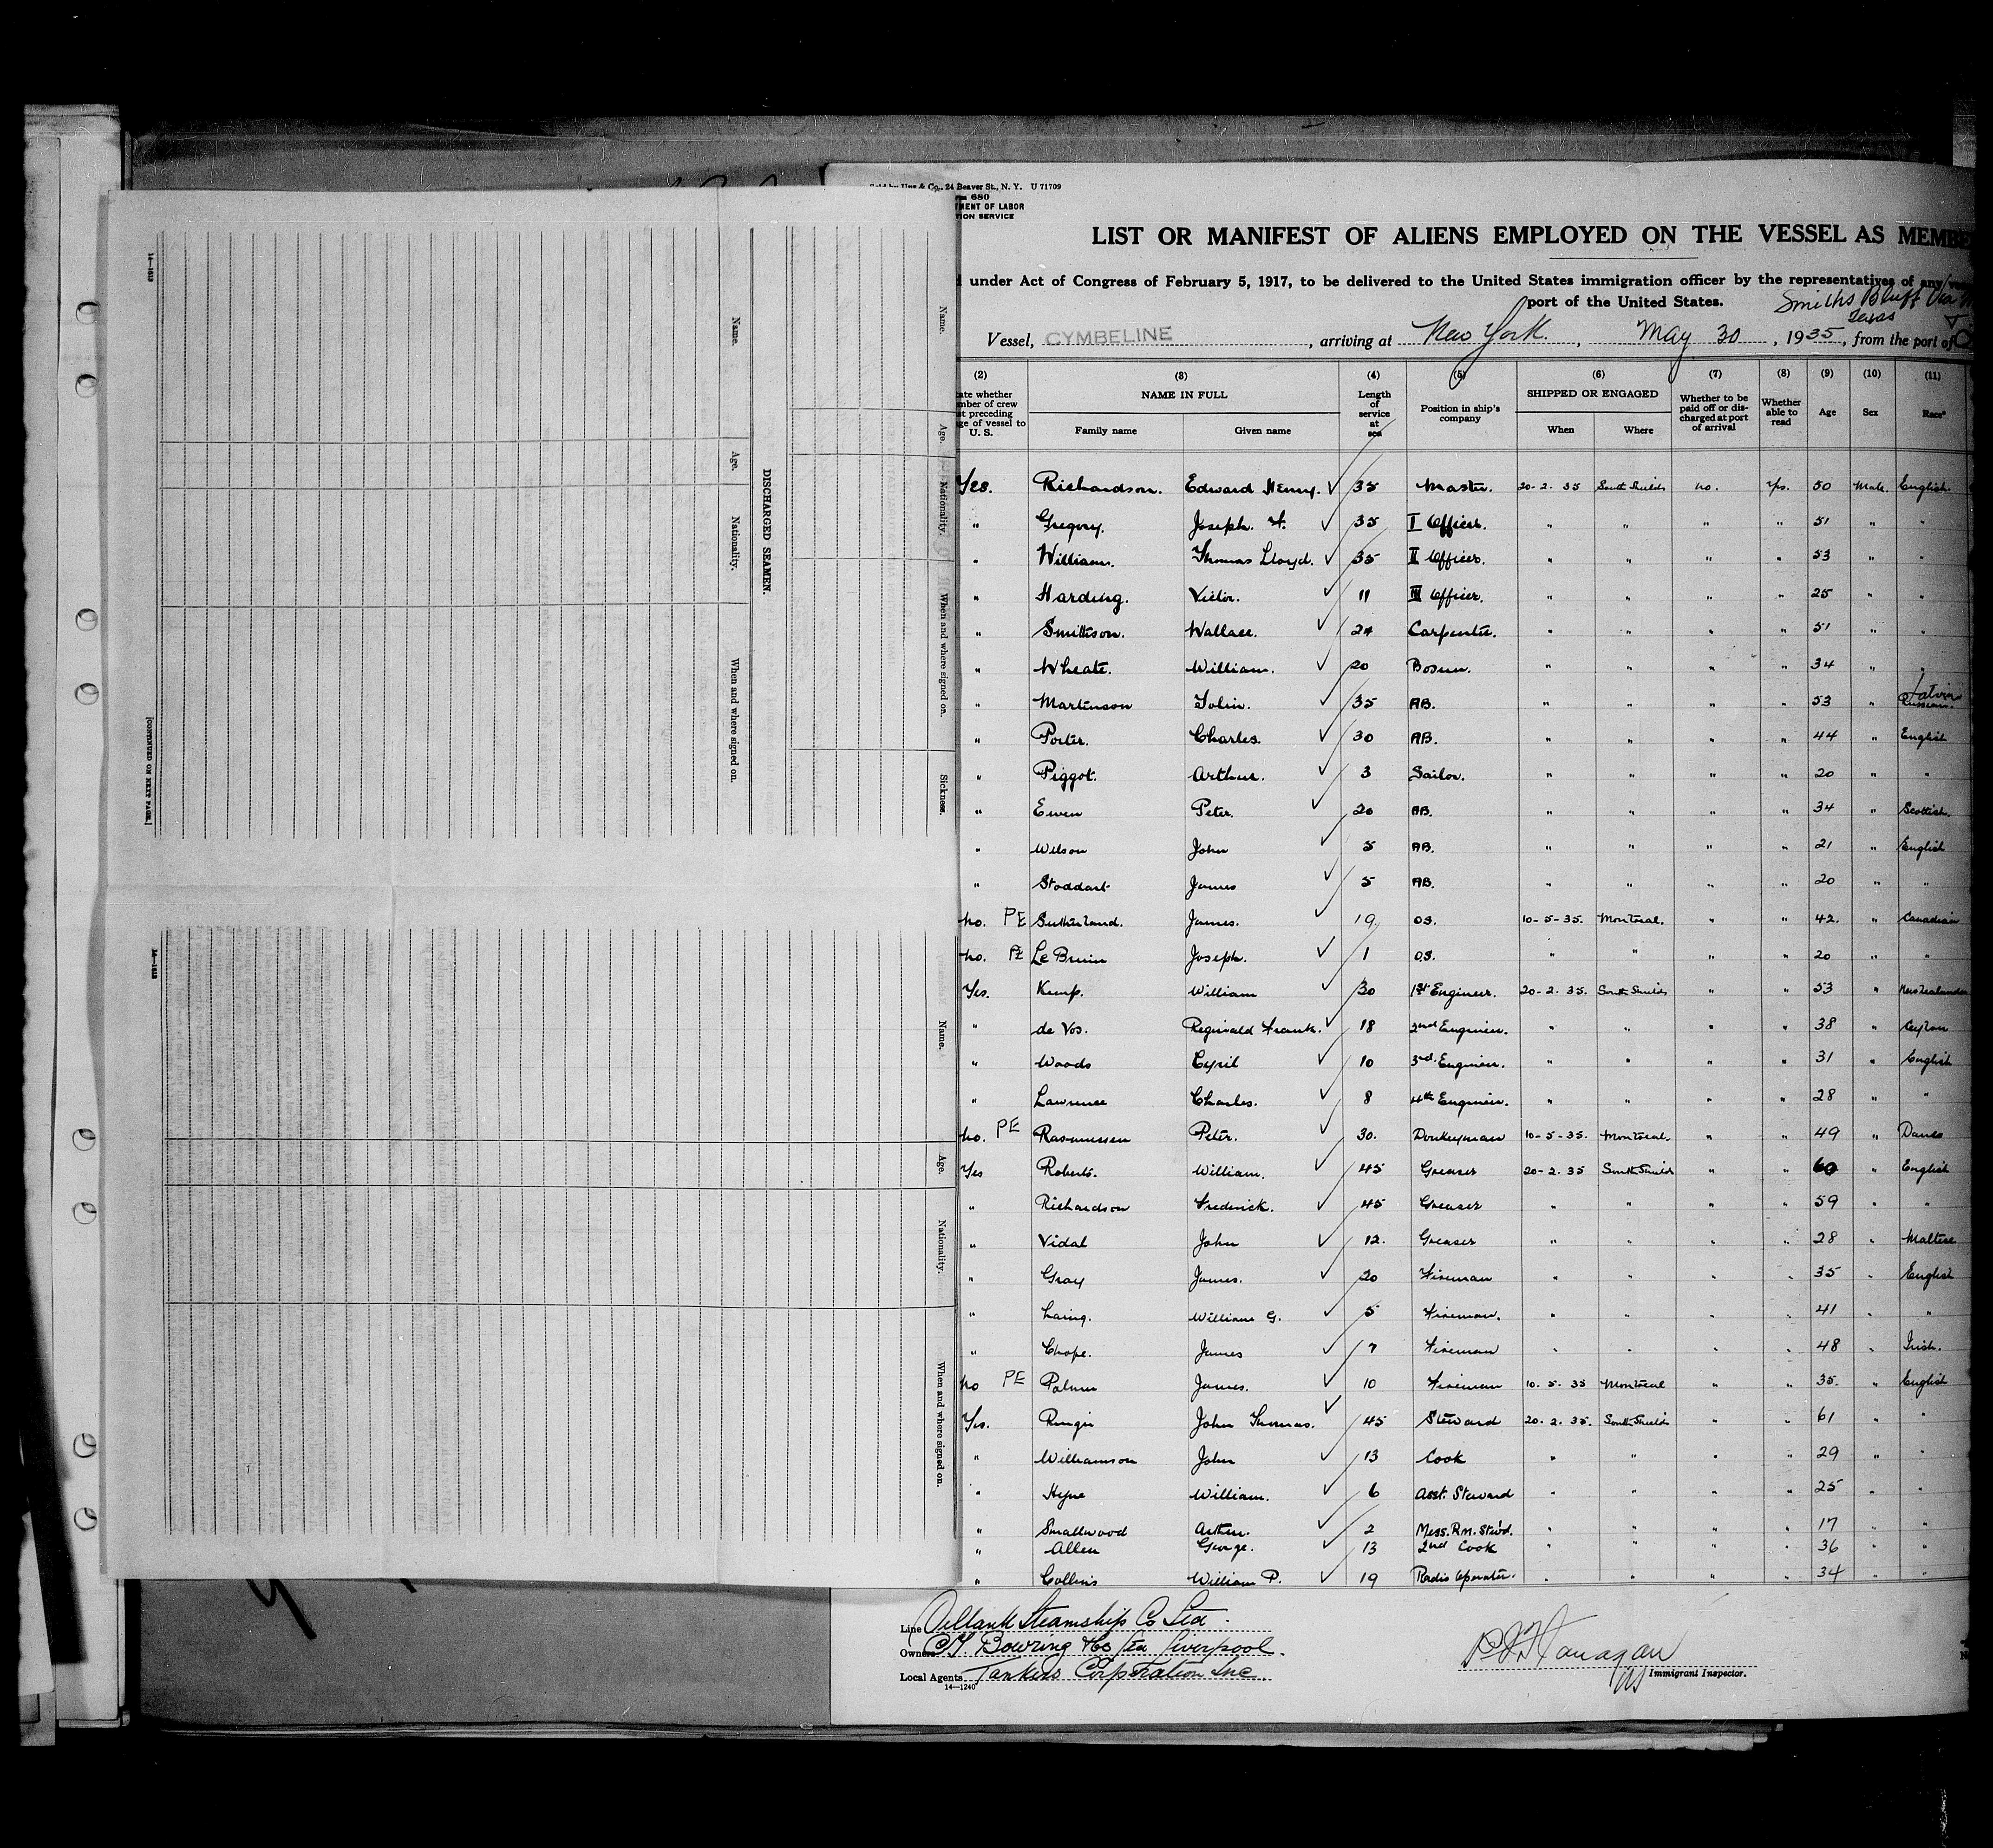 Sold by Unz & Co., 24 Beaver St., N. Y. U 71709
680
MENT OF LABOR
TION SERVICE
LIST OR MANIFEST OF ALIENS EMPLOYED ON THE VESSEL AS MEMBE
under Act of Congress of February 5, 1917, to be delivered to the United States immigration officer by the representatives of any
port of the United States.
Smiths Bluff
Texas
Vessel, CYMBELINE, arriving at New York., May 30, 1935, from the port of
(2) (3) (4) (5) (6) (7) (8) (9) (10) (11)
ate whether mber of crew st preceding ge of vessel to U. S. NAME IN FULL Family name Given name Length of service at sea Position in ship's company SHIPPED OR ENGAGED When Where Whether to be paid off or discharged at port of arrival Whether able to read Age Sex Race*
Yes. Richardson. Edward Henry. ✓ 35 Master. 20-2. 35 South Shields no. Yes. 50 Male. English.
" Gregory. Joseph. ✓ 35 I Officer. " " " " 51 " "
" William. Thomas Lloyd. ✓ 35 II Officer. " " " " 53 " "
" Harding. Victor. ✓ 11 III Officer. " " " " 25 " "
" Smithson. Wallace. ✓ 24 Carpenter. " " " " 51 " "
" Wheate. William. ✓ 20 Bosun. " " " " 34 " "
" Martinson John. ✓ 35 AB. " " " " 53 " Latvian Russian.
" Porter. Charles. ✓ 30 AB. " " " " 44 " English
" Piggot. Arthur. ✓ 3 Sailor. " " " " 20 " "
" Ewen Peter. ✓ 20 AB. " " " " 34 " Scottish.
" Wilson John ✓ 5 AB. " " " " 21 " English
" Stoddart James ✓ 5 AB. " " " " 20 " "
no. PE Sutherland. James. ✓ 19. OS. 10-5-35. Montreal. " " 42. " Canadian
no. PE Le Bruin Joseph. ✓ 1 O.S. " " " " 20 " "
Yes. Kemp. William ✓ 30 1st Engineer. 20-2. 35. South Shields " " 53 " New Zealander
" de Vos. Reginald Frank. ✓ 18 2nd Engineer. " " " " 38 " Ceylon
" Woods Cyril ✓ 10 3rd. Engineer. " " " " 31 " English
" Lawrence Charles. ✓ 8 4th Engineer. " " " " 28 " "
no. PE Rasmussen Peter. ✓ 30. Donkeyman 10-5-35. Montreal. " " 49 " Danes
Yes Roberts. William. ✓ 45 Greaser 20-2. 35 South Shields " " 60 " English
" Richardson Frederick. ✓ 45 Greaser " " " " 59 " "
" Vidal John ✓ 12. Greaser " " " " 28 " Maltese
" Gray James. ✓ 20 Fireman " " " " 35 " English
" Laing. William G. ✓ 5 Fireman. " " " " 41 " "
" Chope. James ✓ 7 Fireman " " " " 48 " Irish.
no PE Palmer James. ✓ 10 Fireman 10. 5. 35 Montreal " " 35. " English
Yes. John Thomas. ✓ 45 Steward 20. 2. 35. South Shields " " 61 " "
" Williamson John ✓ 13 Cook " " " " 29 " "
" Hyne William. ✓ 6 Asst. Steward " " " " 25 " "
" Smallwood Arthur. ✓ 2 Mess. Rm. Stew'd. " " " " 17 " "
" Allen George. ✓ 13 2nd Cook " " " " 36 " "
" Collins William P. ✓ 19 Radio Operator. " " " " 34 " "
Line Oiltank Steamship Co Ltd.
Owners CT Bowring & Co Ltd Liverpool.
Local Agents Tankers Corporation Inc
14—1240
Immigrant Inspector.
Name. Age. Nationality. When and where signed on. Sickness.
DISCHARGED SEAMEN.
Name. Age. Nationality. When and where signed on.
14—1613
[CONTINUED ON NEXT PAGE.]
Name. Age. Nationality. When and where signed on.